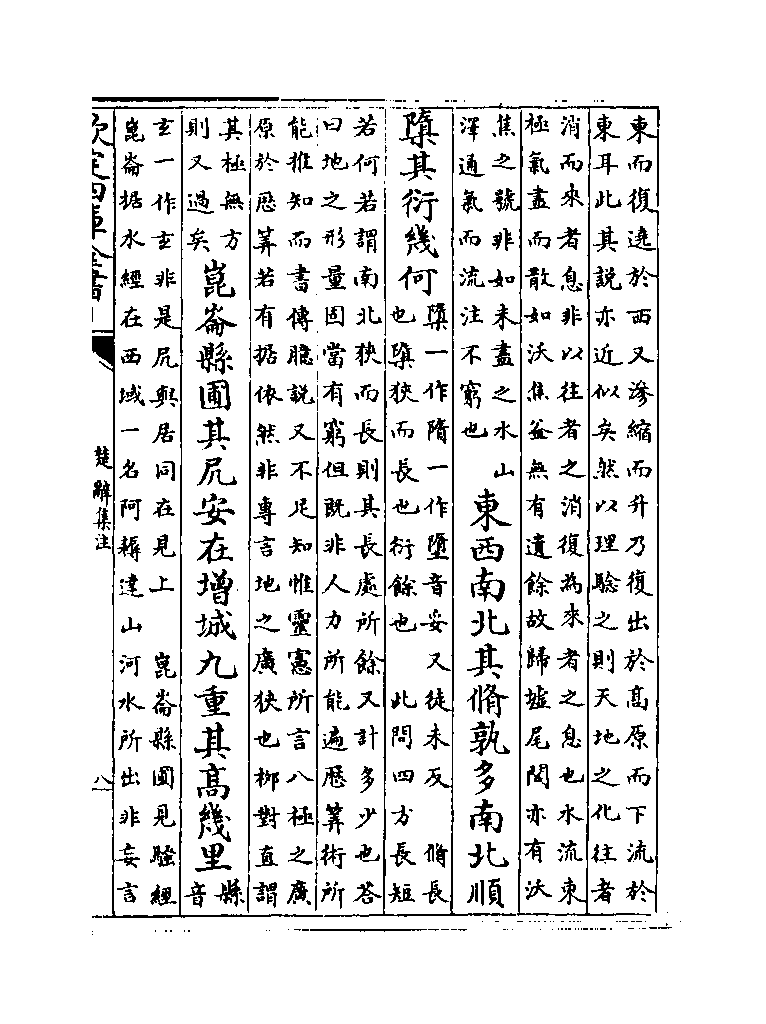 東而復遶於西又滲縮而升乃復出於高原而下流於
東耳此其說亦近似矣然以理驗之則天地之化往者
消而來者息非以往者之消復為來者之息也水流東
極氣盡而散如沃焦釜無有遺餘故歸墟尾閭亦有沃
焦之號非如未盡之水山
澤通氣而流注不窮也
東西南北其脩孰多南北順
隳其衍幾何
隳一作隋一作墮音妥又徒未反 脩長
也隳狹而長也衍餘也 此問四方長短
若何若謂南北狹而長則其長處所餘又計多少也答
曰地之形量固當有窮但既非人力所能遍歴筭術所
能推知而書傳臆說又不足知惟靈憲所言八極之廣
原於厯筭若有据依然非專言地之廣狹也柳對直謂
其極無方
則又過矣
崑崙縣圃其凥安在增城九重其高幾里
縣
音
玄一作玄非是凥與居同在見上 崑崙縣圃見騷經
崑崙据水經在西域一名阿耨達山河水所出非妄言
欽定四庫全書
楚辭集注
八